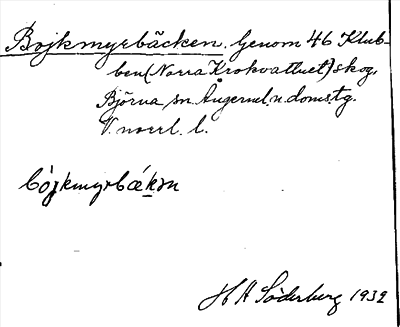 Bojkmyrbäcken. Genom 46 Klub-
ben (Norra Krokvattnet) skog,
Björna sn. Ångerml. n. doms.tg.
V. norrl. l.
bójkmyrbǽkən
H A Söderberg 1932